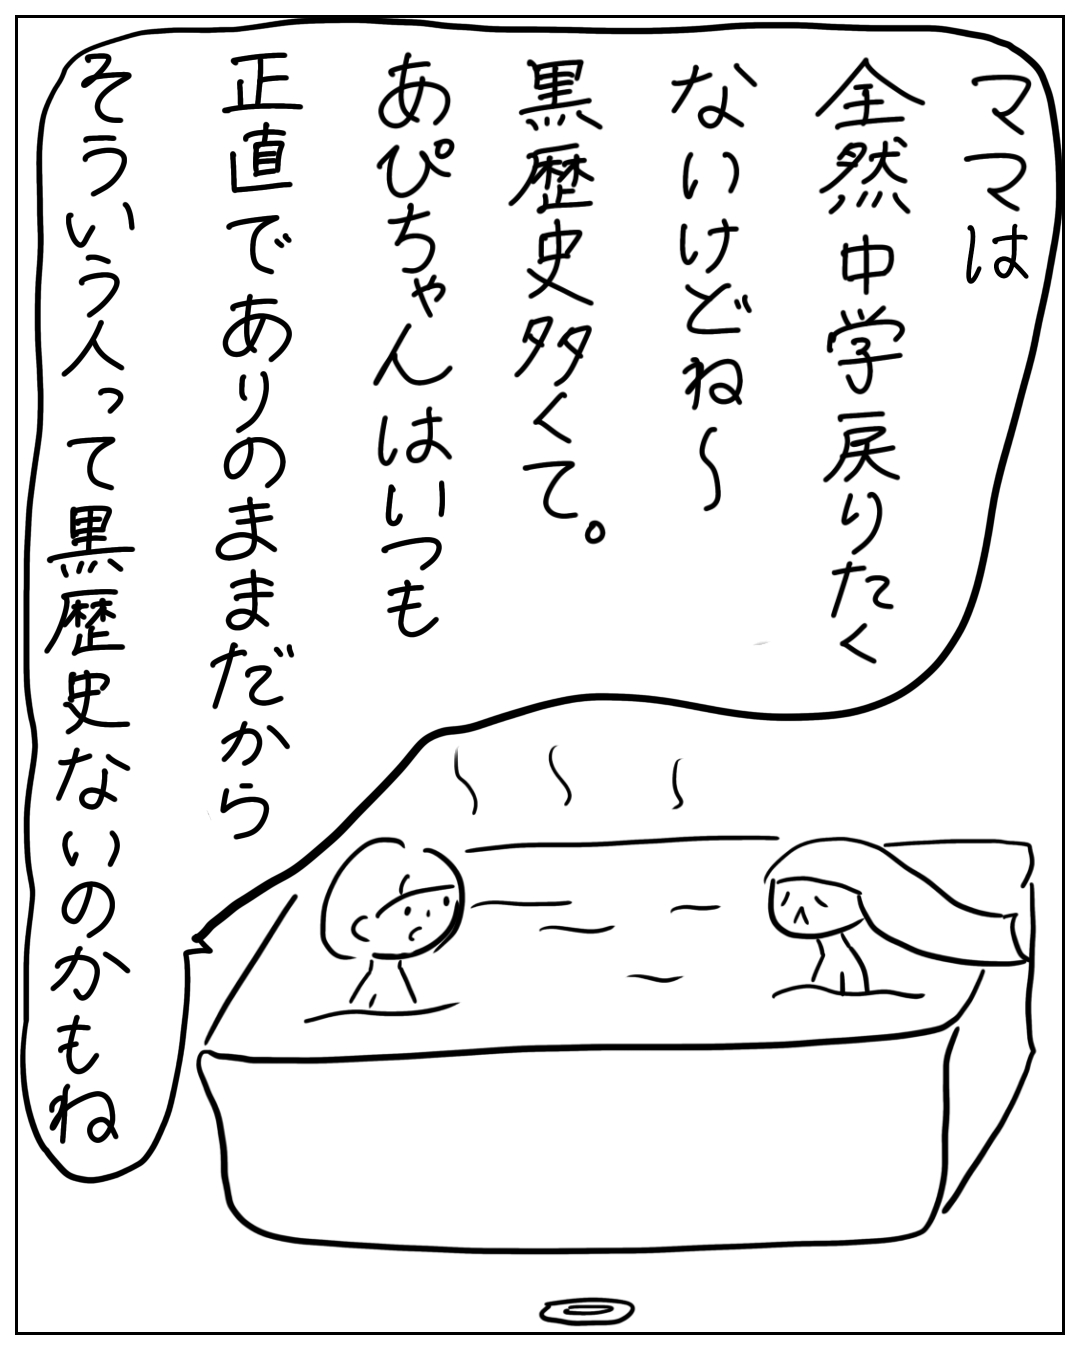 ママは
全然中学戻りたく
ないけどね〜
黒歴史多くて。
あぴちゃんはいつも
正直でありのままだから
そういう人って黒歴史ないのかもね